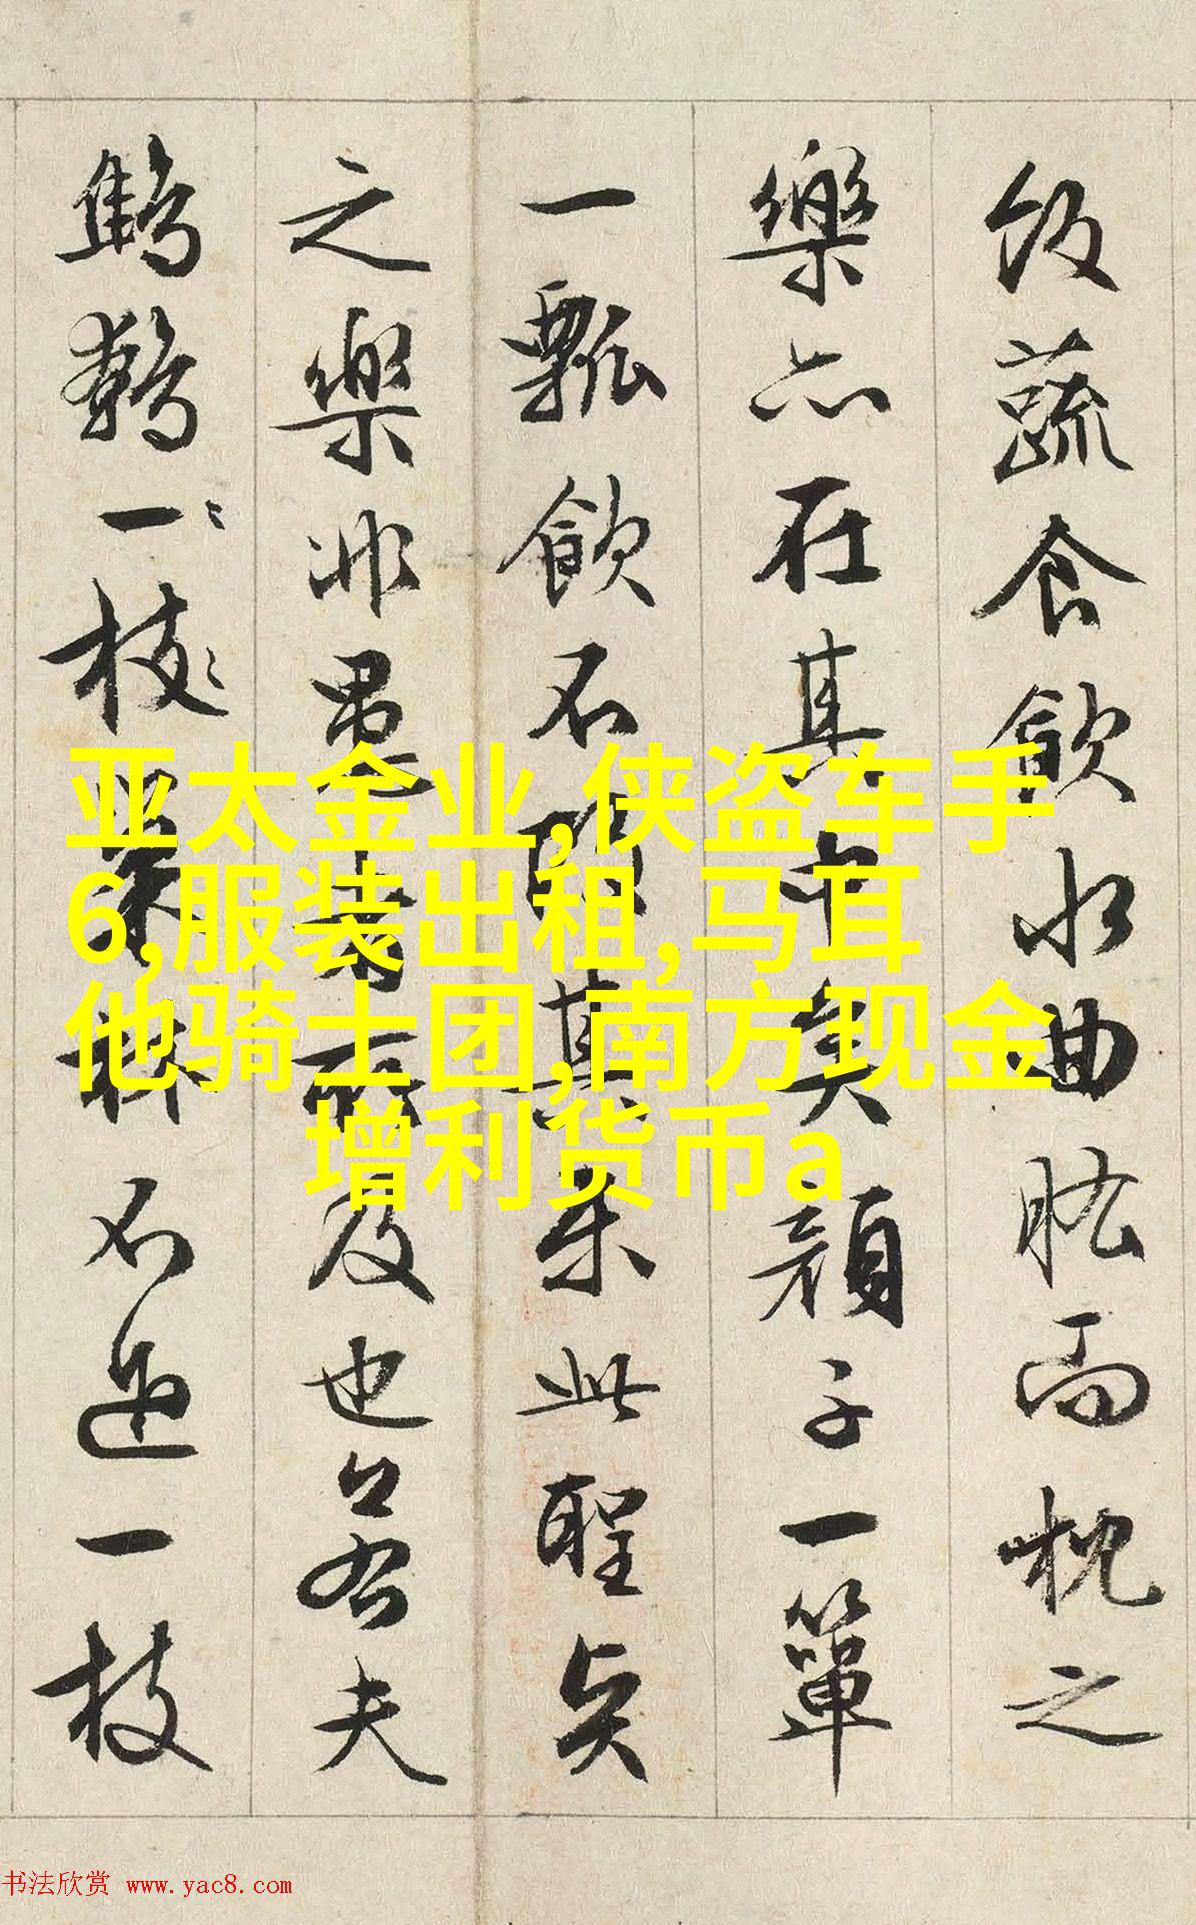 飯蔬食飲水曲肱而枕之
樂亦在其中矣顔子一簞
一瓢飲不改其樂此聖賢
之樂非愚者所及也若夫
鷦鷯一枝巢林不過一枝
亚太金业,侠盗车手
6,服装出租,马耳
他骑士团,南方现金
增利货币a
书法欣赏 www.yac8.com